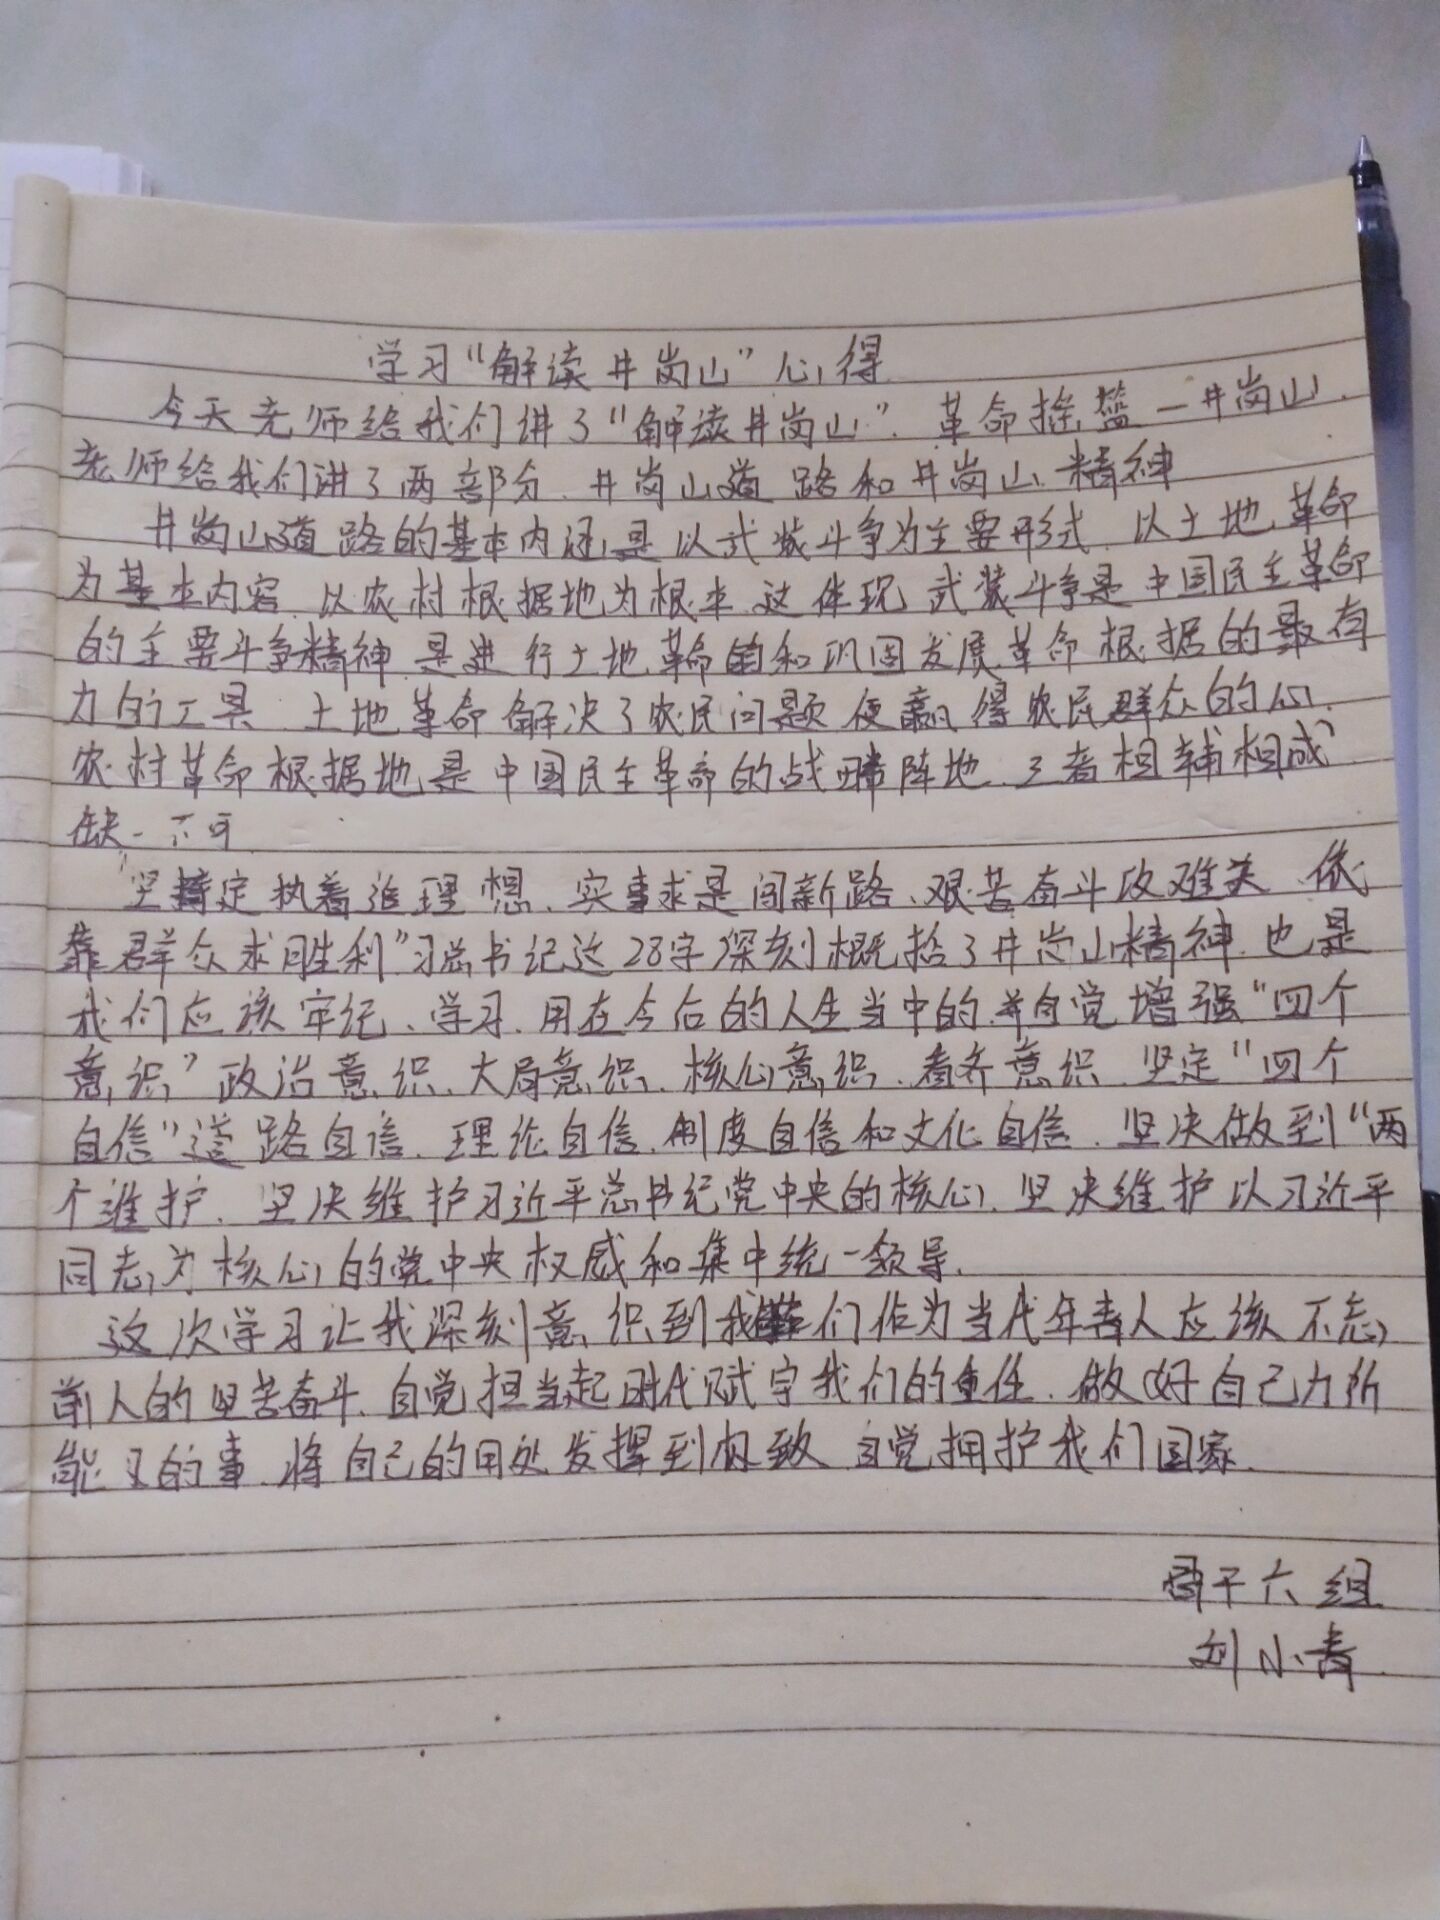 学习“解读井岗山”心得
今天老师给我们讲了“解读井岗山”．革命摇篮－井岗山．
老师给我们讲了两部分．井岗山道路和井岗山精神
井岗山道路的基本内涵是以武装斗争为主要形式．以土地革命
为基本内容 以农村根据地为根本 这体现 武装斗争是中国民主革命
的主要斗争精神 是进行土地革命的和巩固发展革命根据的最有
力的工具 土地革命解决了农民问题 便赢得农民群众的心．
农村革命根据地是中国民主革命的战略阵地．三者相辅相成
缺一不可
“坚定执着追理想、实事求是闯新路、艰苦奋斗攻难关、依
靠群众求胜利”习总书记这28字深刻概括了井岗山精神．也是
我们应该牢记、学习．用在今后的人生当中的．并自觉增强“四个
意识”政治意识、大局意识．核心意识．看齐意识．坚定“四个
自信”道路自信．理论自信．制度自信和文化自信．坚决做到“两
个维护．坚决维护习近平总书记党中央的核心．坚决维护以习近平
同志为核心的党中央权威和集中统一领导．
这次学习让我深刻意识到我们作为当代年青人应该不忘
前人的坚苦奋斗．自觉担当起时代赋字我们的重任．做好自己力所
能及的事．将自己的用处发挥到极致 自觉拥护我们国家．
骨干六组
刘小青